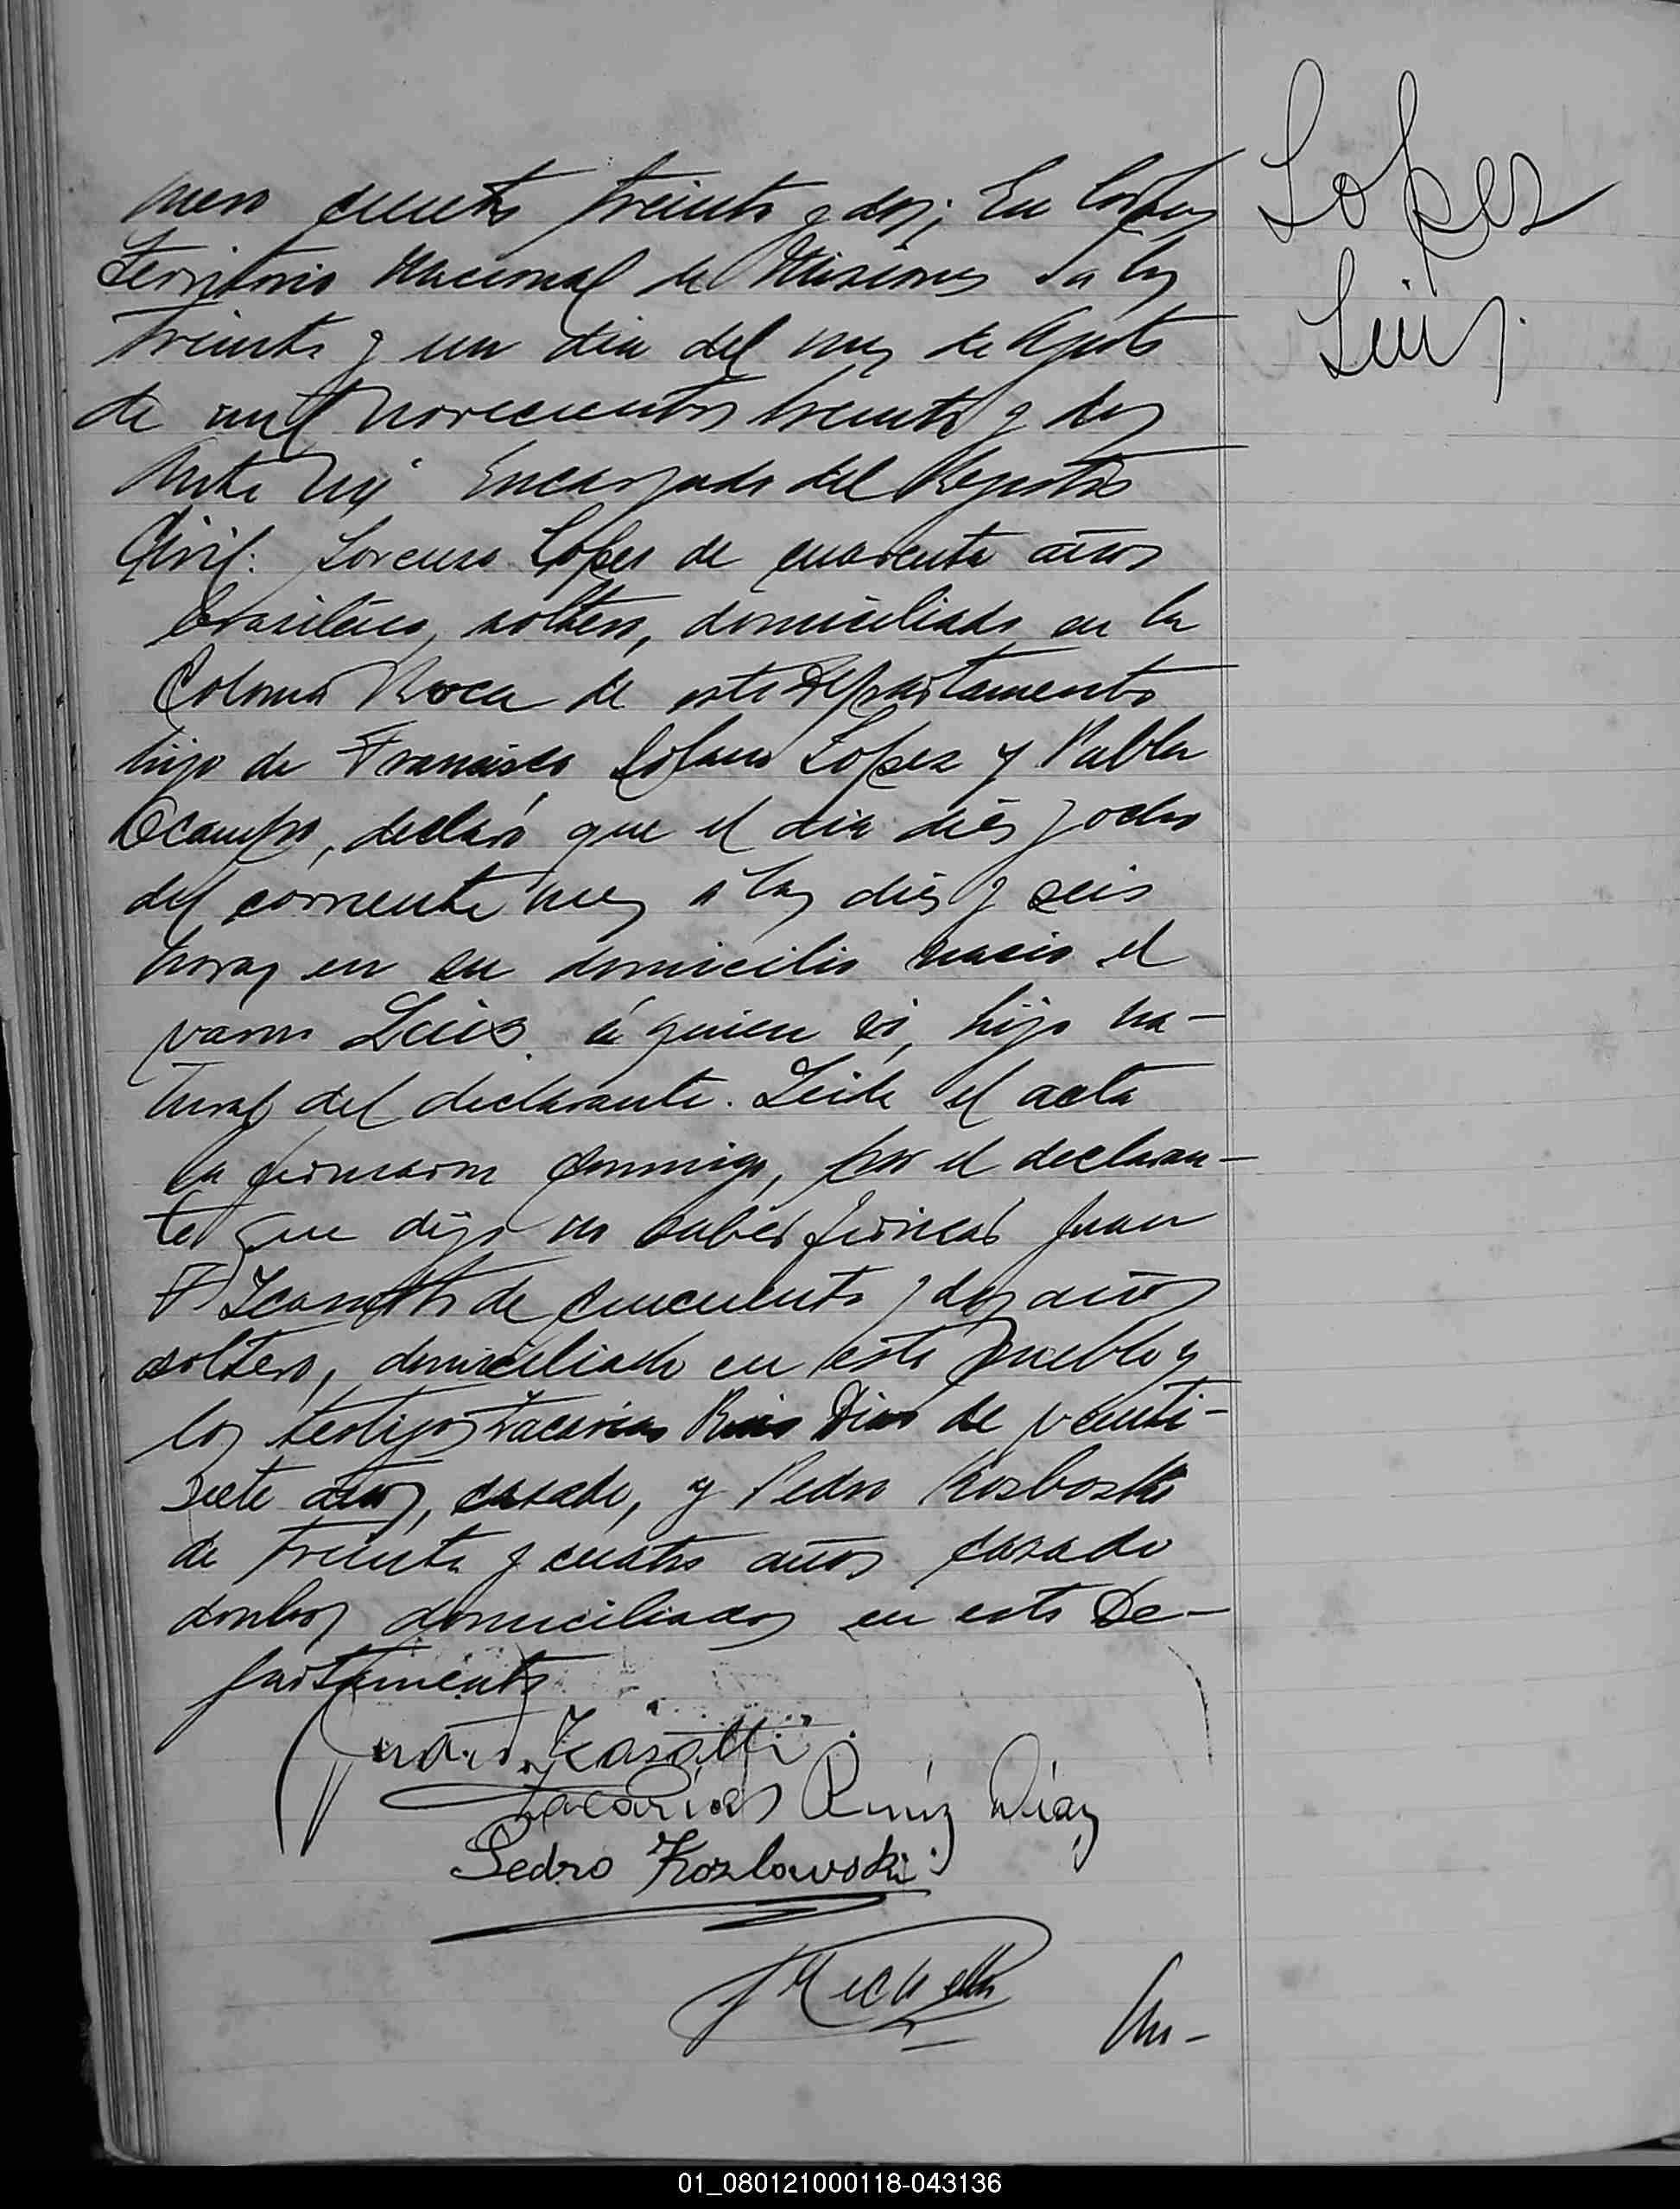 Lopez
Luis
mero ciento treinta y dos; En Corpus
Territorio Nacional de Misiones a los
treinta y un dia del mes de Agosto
de mil novecientos treinta y dos
Ante mi Encargado del Registro
Civil: Lorenzo Lopez de cuarenta años
brasilero, soltero, domiciliado en la
Colonia Roca de este Departamento
hijo de Francisco Solano Lopez y Pabla
Ocampo, declaró que el dia dies y ocho
del corriente mes a las dies y seis
horas en su domicilio nacio el
varon Luis á quien vi, hijo na-
tural del declarante. Leida el acta
la firmaron conmigo, por el declaran-
te que dijo no saber firmar Juan
de cincuenta y dos años
soltero, domiciliado en este pueblo y
los testigos Zacarias Ruis Dias de venti-
siete años, casado, y Pedro
de treinta y cuatro años casado
ambos domiciliados en este De-
partamento
Zacarias Ruiz Diaz
Pedro Kozlowski
Nu-
01_080121000118-043136